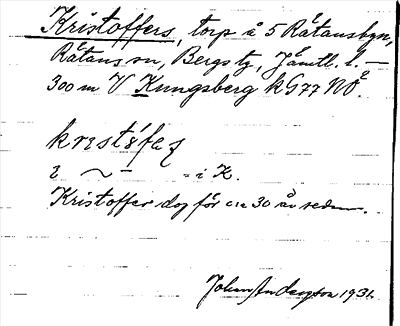 Kristoffers, torp å 5 Råtansbyn,
Råtans sn, Bergs tg, Jämtl. l. —
300 m V Kungsberg k G77 NÖ.
i ~ – = i K.
Kristoffer dog för c:a 30 år sedan.
Johan Anderson 1931.